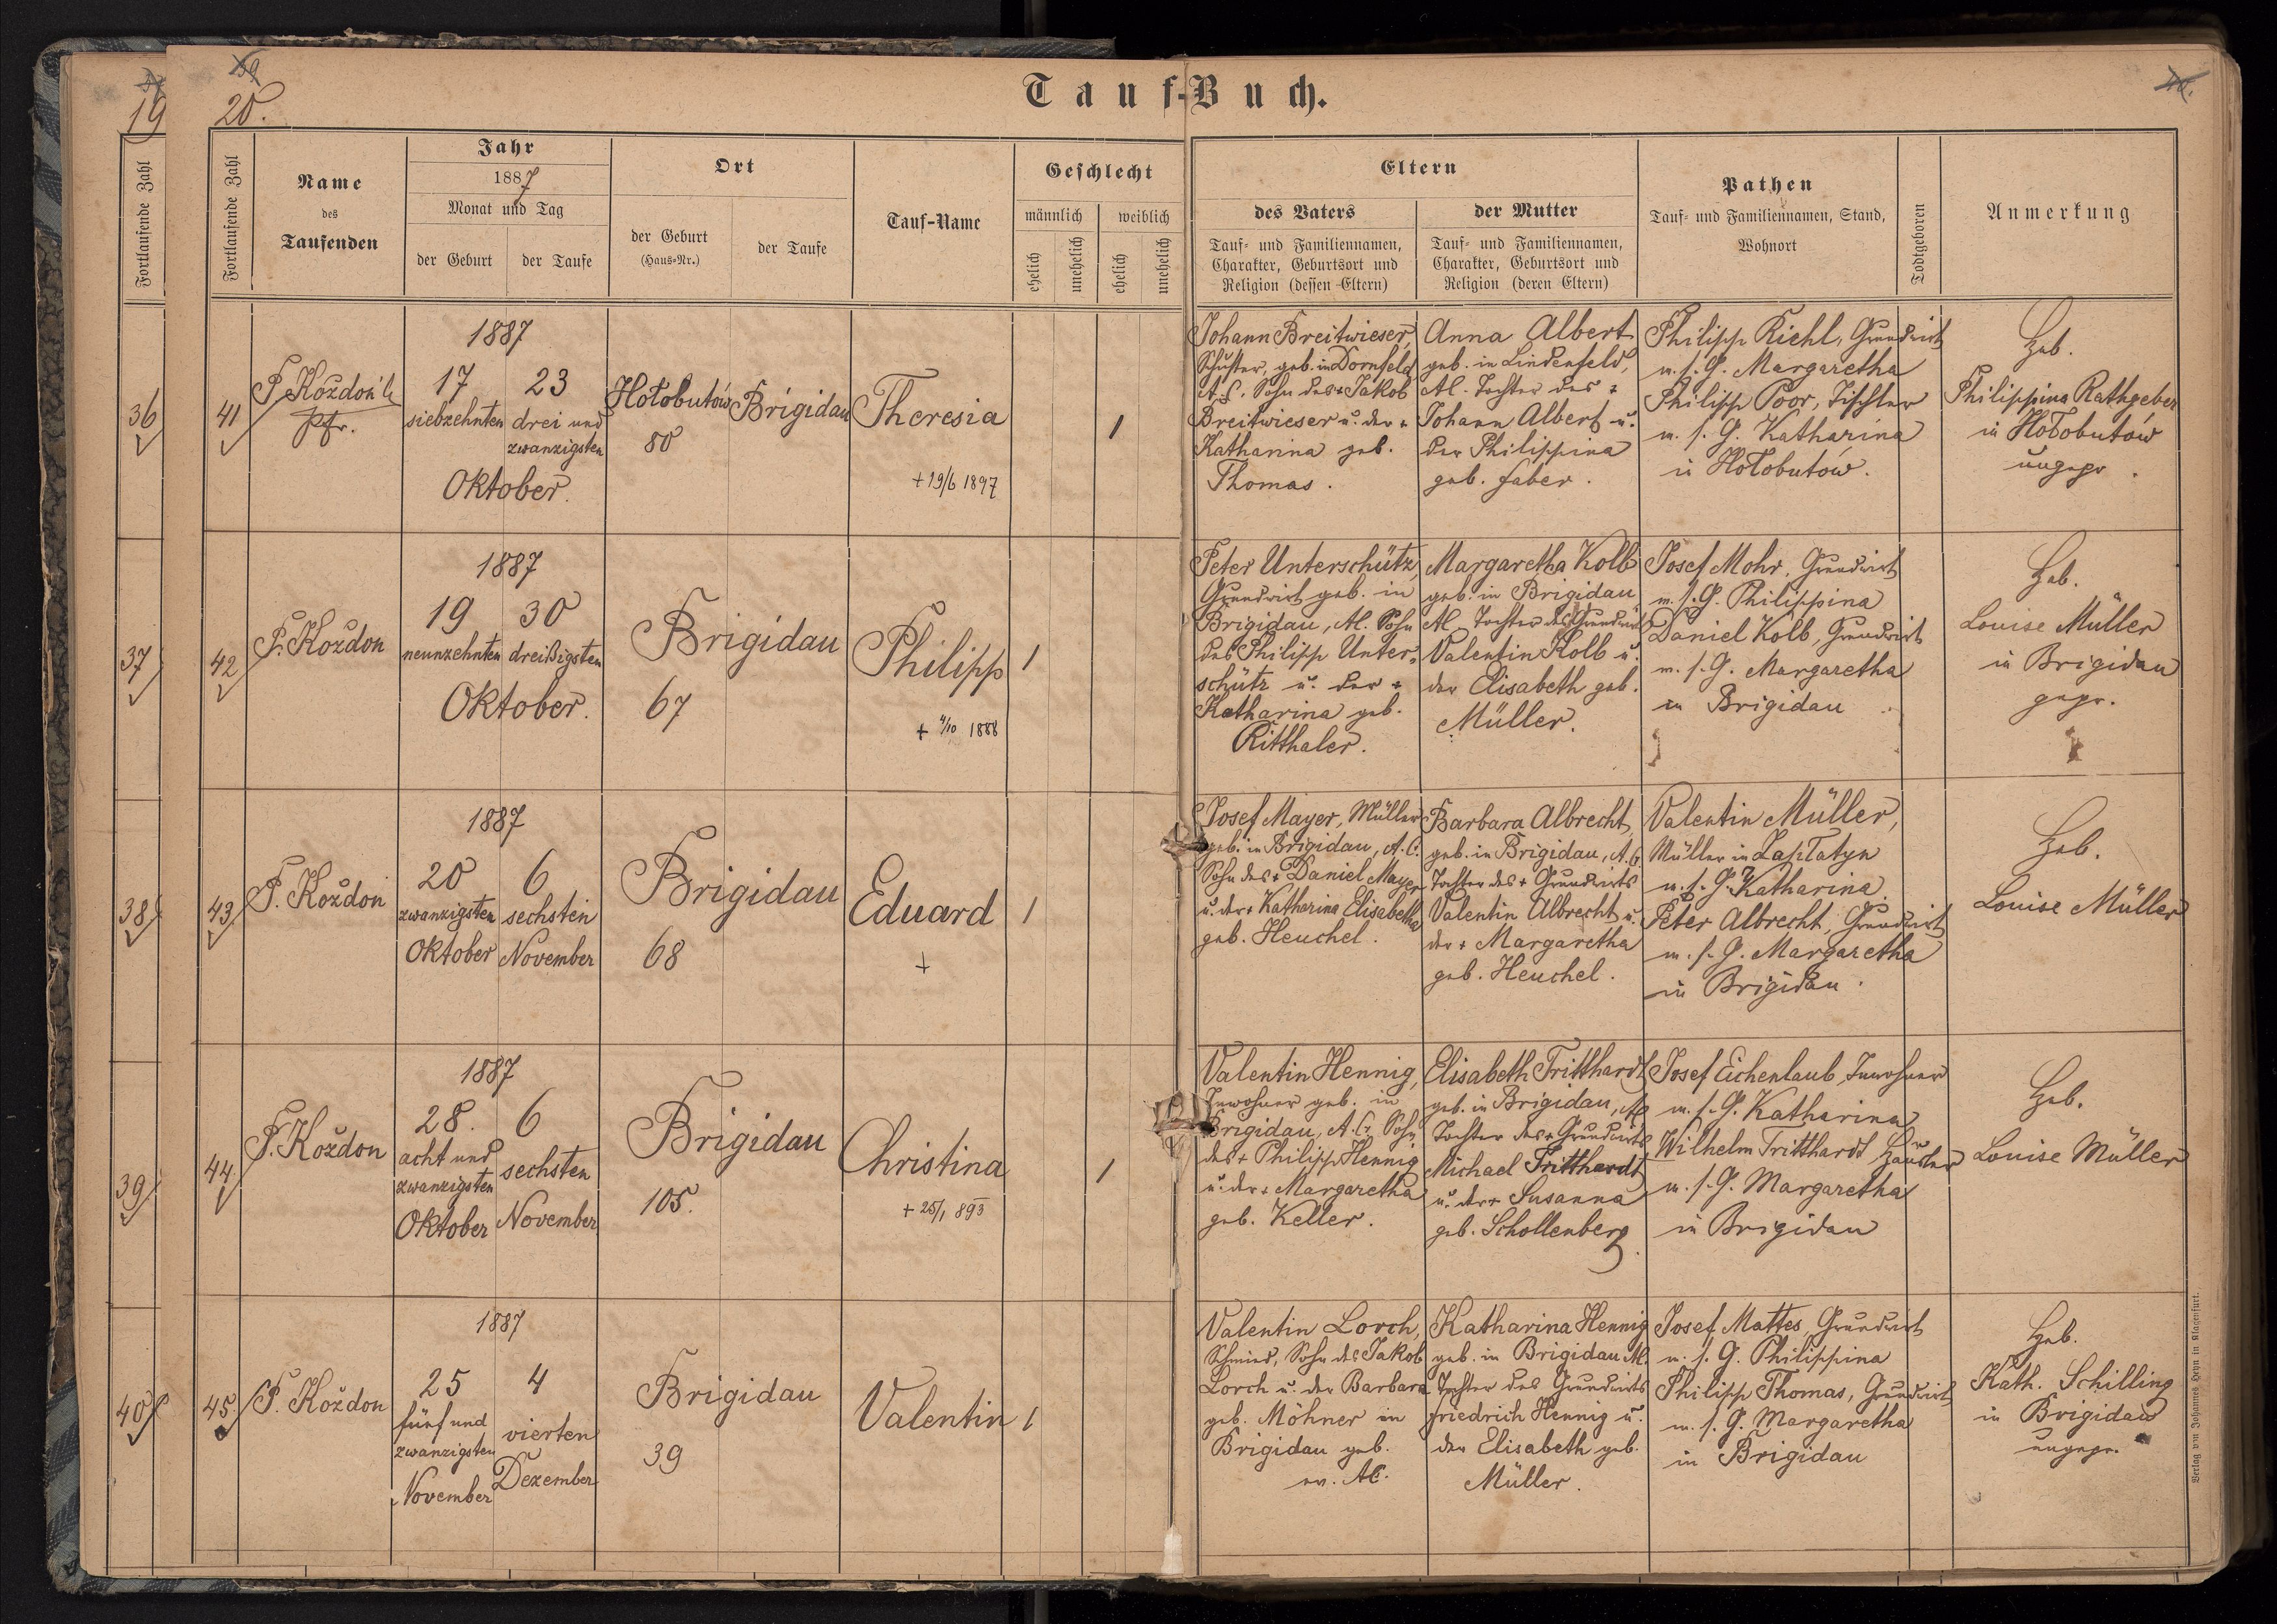 19
20.
Tauf-Buch.
Fortlaufende Zahl
Fortlaufende Zahl
Name
des
Taufenden
Jahr
1887
Monat und Tag
der Geburt
der Taufe
Ort
der Geburt
(Haus-Nr.)
der Taufe
Tauf-Name
Geschlecht
männlich
weiblich
ehelich
unehelich
ehelich
unehelich
Eltern
des Vaters
Tauf- und Familiennamen,
Charakter, Geburtsort und
Religion (dessen Eltern)
der Mutter
Tauf- und Familiennamen,
Charakter, Geburtsort und
Religion (deren Eltern)
Pathen
Tauf- und Familiennamen, Stand,
Wohnort
Todtgeboren
Anmerkung
36
41
P. Koždon
Pfr.
1887
17 23
siebzehnten drei und
zwanzigsten
Oktober.
Hołobutów
80
Brigidau
Theresia
+ 19/6 1897
1
Johann Breitwieser,
Schuster, geb. in Dornfeld
A.C. Sohn des + Jakob
Breitwieser u. der +
Katharina geb.
Thomas.
Anna Albert
geb. in Lindenfeld,
AC. Tochter des +
Johann Albert u.
der Philippina
geb. Faber.
Philipp Riehl, Grundwirt
m. s. G. Margaretha
Philipp Poor, Tischler
m. s. G. Katharina
in Hołobutów.
Heb.
Philippina Rathgeber
in Hołobutów
ungepr.
37
42
P. Koždon
1887
19 30
neunzehnten dreißigsten
Oktober.
Brigidau
67
Philipp
+ 4/10 1888
1
Peter Unterschütz,
Grundwirt geb. in
Brigidau, AC. Sohn
des Philipp Unter-
schütz u. der +
Katharina geb.
Ritthaler.
Margaretha Kolb
geb. in Brigidau
AC. Tochter des Grundwirts
Valentin Kolb u.
der Elisabeth geb.
Müller.
Josef Mohr, Grundwirt
m. s. G. Philippina
Daniel Kolb, Grundwirt
m. s. G. Margaretha
in Brigidau
Heb.
Louise Müller
in Brigidau
gepr.
38
43
P. Koždon
1887
20 6
zwanzigsten sechsten
Oktober November
Brigidau
68
Eduard
+
1
Josef Mayer, Müller
geb. in Brigidau, A.C.
Sohn des + Daniel Mayer
u. der + Katharina Elisabetha
geb. Heuchel.
Barbara Albrecht,
geb. in Brigidau, A.C.
Tochter des + Grundwirts
Valentin Albrecht u.
der + Margaretha
geb. Heuchel.
Valentin Müller,
Müller in Zapłatyn
m. s. G. Katharina
Peter Albrecht, Grundwirt
m. s. G. Margaretha
in Brigidau.
Heb.
Louise Müller
39
44
P. Koždon
1887
28. 6
acht und sechsten
zwanzigsten
Oktober November
Brigidau
105.
Christina
+ 25/1 893
1
Valentin Hennig,
Inwohner geb. in
Brigidau, A.C. Sohn
des + Philipp Hennig
u. der + Margaretha
geb. Keller.
Elisabeth Tritthardt
geb. in Brigidau, AC
Tochter des + Grundwirts
Michael Tritthardt
u. der + Susanna
geb. Schollenberg.
Josef Eichenlaub, Inwohner
m. s. G. Katharina
Wilhelm Tritthardt Häusler
m. s. G. Margaretha
in Brigidau
Heb.
Louise Müller
40
45
P. Koždon
1887
25 4
fünf und vierten
zwanzigsten
November Dezember
Brigidau
39
Valentin
1
Valentin Lorch,
Schmied, Sohn des Jakob
Lorch u. der Barbara
geb. Möhner in
Brigidau geb.
ev. AC.
Katharina Hennig
geb. in Brigidau AC.
Tochter des Grundwirts
Friedrich Hennig u.
der Elisabeth geb.
Müller.
Josef Mattes, Grundwirt
m. s. G. Philippina
Philipp Thomas, Grundwirt
m. s. G. Margaretha
in Brigidau
Heb.
Kath. Schilling
in Brigidau
ungepr.
Verlag von Johannes Heyn in Klagenfurt.